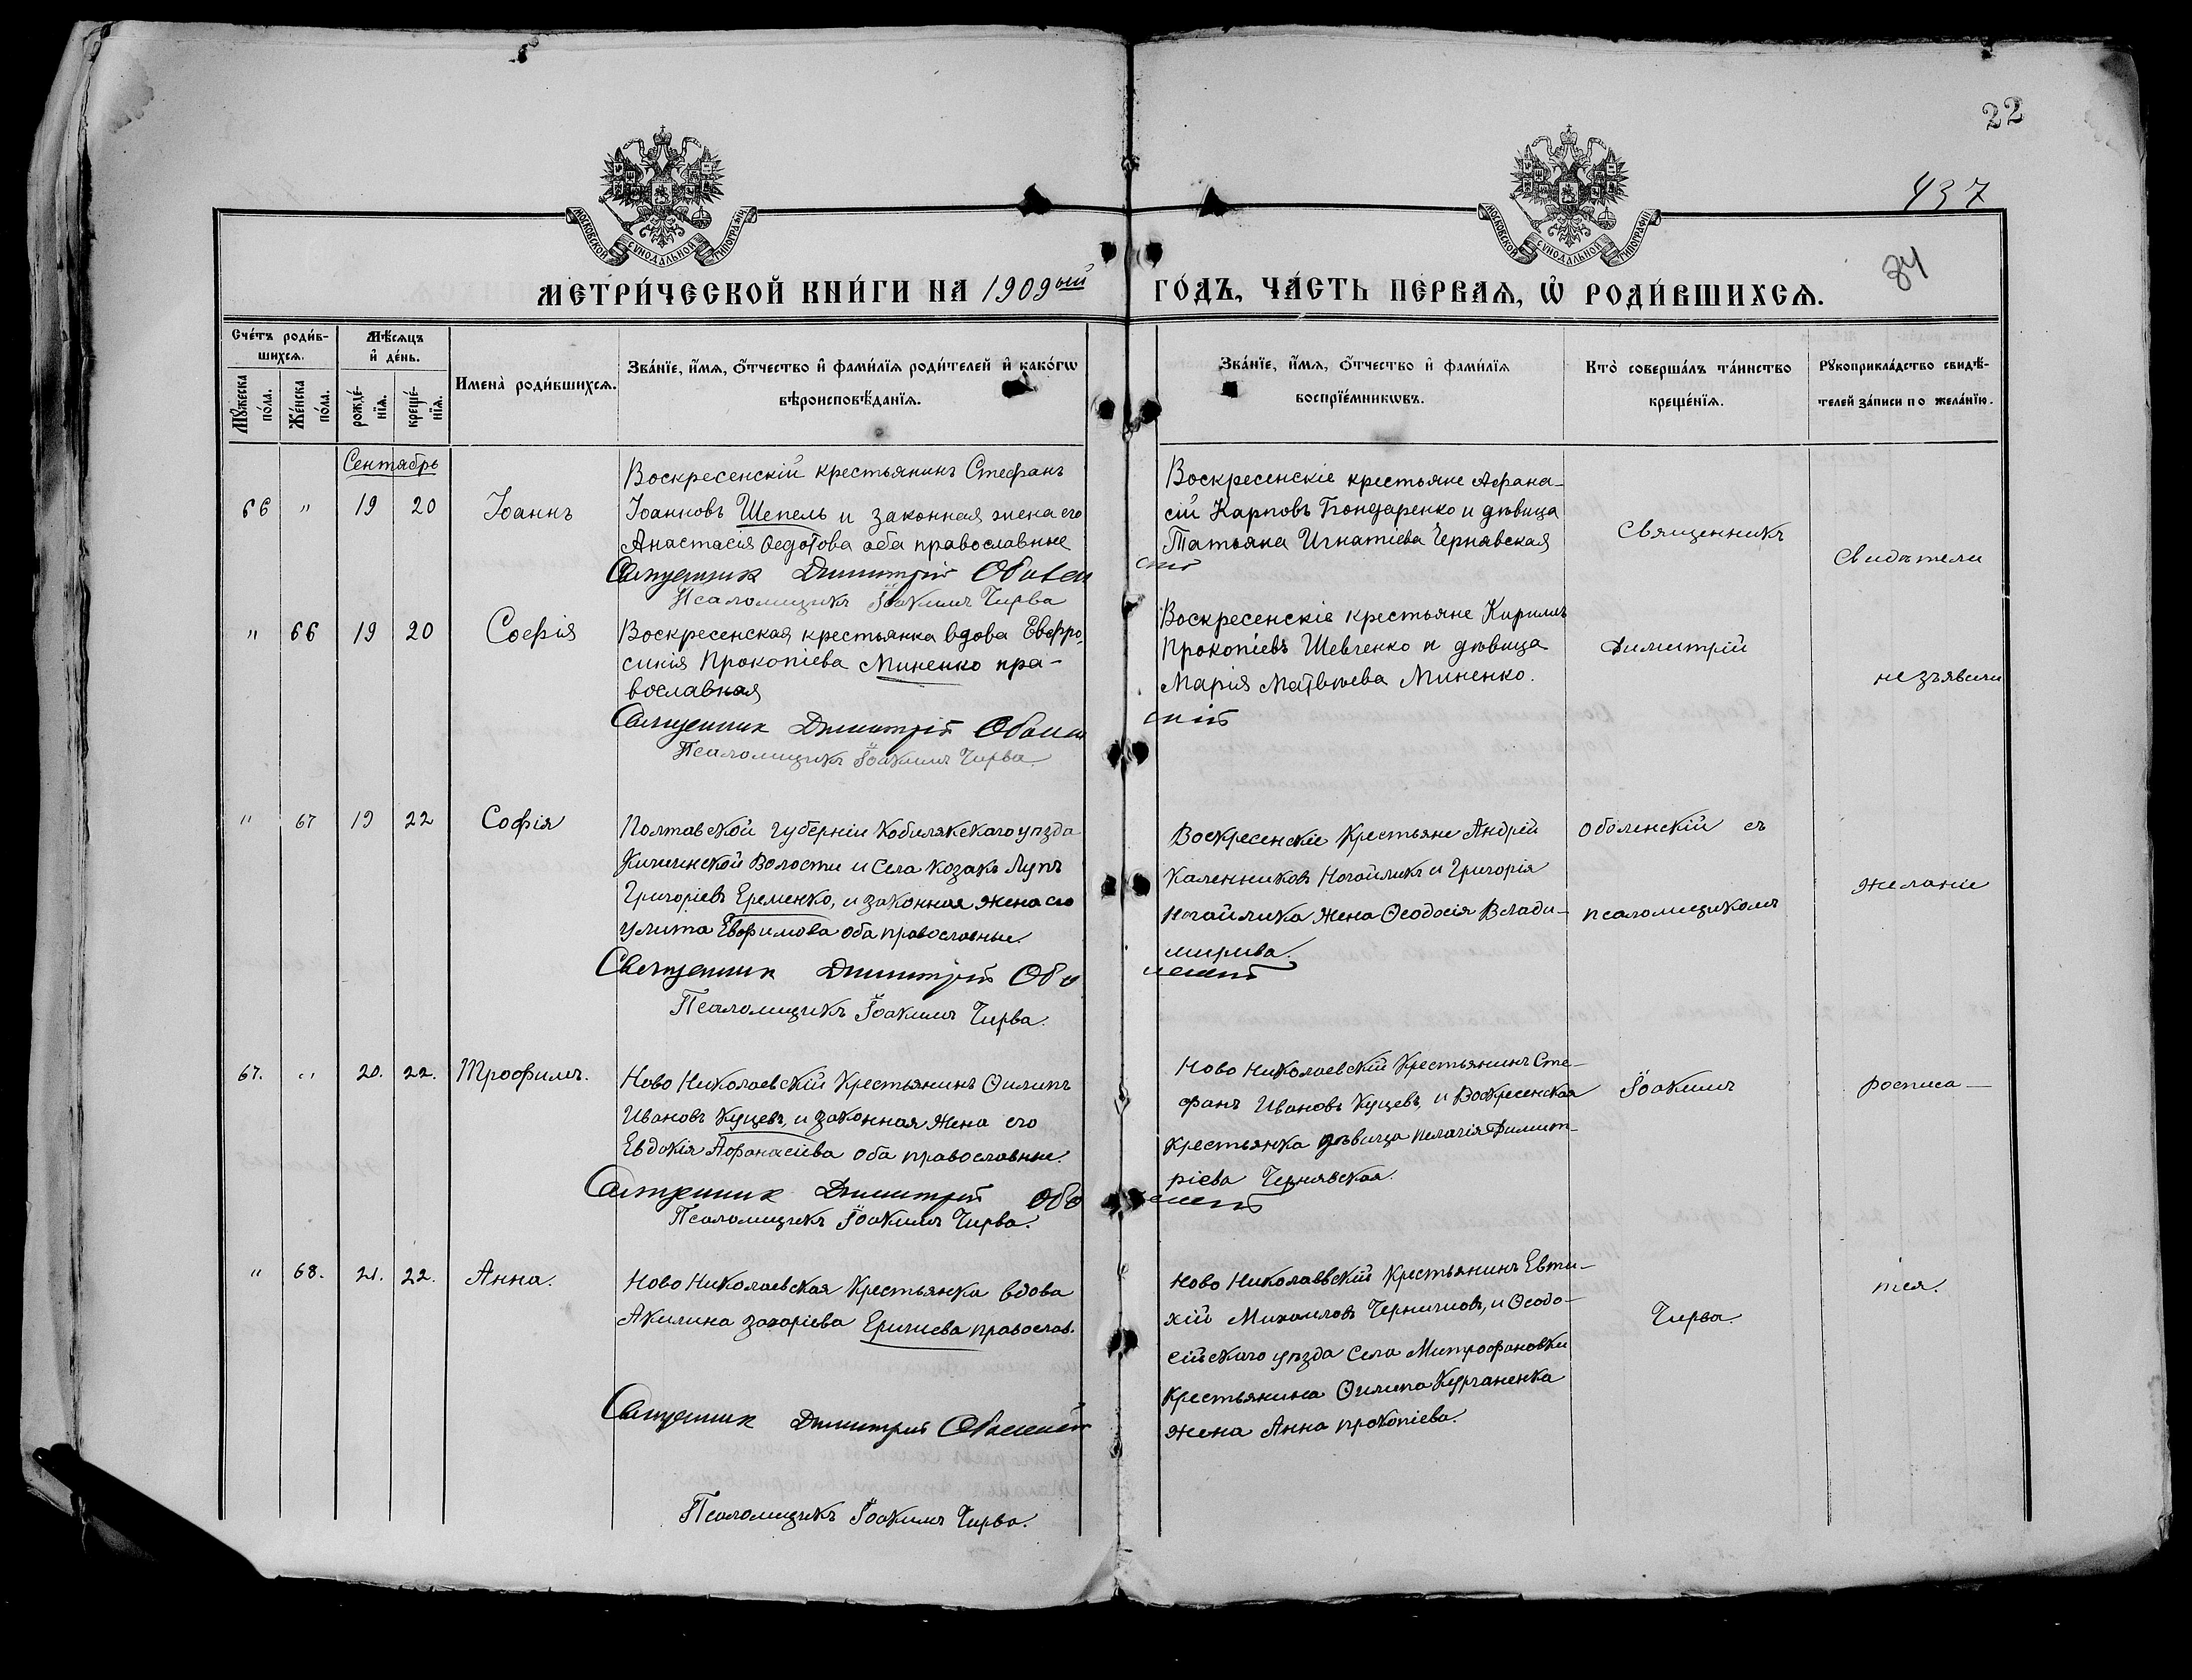 22
437
84
МОСКОВСКОЙ СѴНОДАЛЬНОЙ ТИПОГРАФІИ
МОСКОВСКОЙ СѴНОДАЛЬНОЙ ТИПОГРАФІИ
МЕТРИ́ЧЕСКОЙ КНИ́ГИ НА 1909ый ГО́ДЪ, ЧА́СТЬ ПЕ́РВАѦ, Ѡ҆ РОДИ́ВШИХСѦ.
Сче́тъ роди́в-
шихсѧ.
Мѣ́сѧцъ
и҆ де́нь.
Мꙋ́жеска
по́ла.
Же́нска
по́ла.
рожде́-
нїѧ.
креще́-
нїѧ.
Имена̀ роди́вшихсѧ.
Зва́нїе, и҆́мѧ, ѻ҆́тчество и҆ фами́лїѧ роди́телей и҆ како́гѡ
вѣроисповѣ́данїѧ.
Зва́нїе, и҆́мѧ, ѻ҆́тчество и҆ фами́лїѧ
воспрїе́мникѡвъ.
Кто̀ соверша́лъ та́инство
креще́нїѧ.
Рꙋкоприкла́дство свидѣ́-
телей за́писи по жела́нїю.
Сентябрь
66 " 19 20 Іоаннъ
Воскресенскій крестьянинъ Стефанъ
Іоанновъ Шепель и законная жена его
Анастасія Ѳедотова оба православные
Священникъ Димитрій Оболенскій
Псаломщикъ Іоакимъ Чирва
Воскресенскіе крестьяне Афана-
сій Карповъ Бондаренко и дѣвица
Татьяна Игнатіева Чернявская
" 66 19 20 Софія
Воскресенская крестьянка вдова Евфро-
синія Прокопіева Миненко пра-
вославная
Священникъ Димитрій Оболенскій
Псаломщикъ Іоакимъ Чирва.
Воскресенскіе крестьяне Кирилъ
Прокопіевъ Шевченко и дѣвица
Марія Матвѣева Миненко.
" 67 19 22 Софія
Полтавской губерніи Кобилякскаго уѣзда
Волости и Села козакъ Лупъ
Григоріевъ Еременко, и законная жена его
Улита Евфимова оба православные.
Священникъ Димитрій Оболенскій
Псаломщикъ Іоакимъ Чирва.
Воскресенскіе Крестьяне Андрей
Каленниковъ Ногайликъ и Григорія
Ногайлика жена Ѳеодосія Влади-
мирова.
67. " 20. 22. Трофимъ.
Ново Николаевскій Крестьянинъ Филипъ
Ивановъ Куцевъ, и законная жена его
Евдокія Афанасіева оба православные.
Священникъ Димитрій Оболенскій
Псаломщикъ Іоакимъ Чирва.
Ново Николаевскій Крестьянинъ Сте-
фанъ Ивановъ Куцевъ, и Воскресенская
Крестьянка дѣвица Пелагія Димит-
ріева Чернявская.
" 68. 21. 22. Анна.
Ново Николаевская Крестьянка вдова
Акилина Захаріева православ.
Священникъ Димитрій Оболенскій
Псаломщикъ Іоакимъ Чирва.
Ново Николаевскій Крестьянинъ Евти-
хій Михаиловъ и Ѳеодо-
сійскаго уѣзда Села Митрофановки
Крестьянина Филипа Курганенка
жена Анна Прокопіева.
Священникъ
Димитрій
Оболенскій съ
псаломщикомъ
Іоакимъ
Чирва.
Свидѣтели
незъявили
желаніе
росписа-
тся.